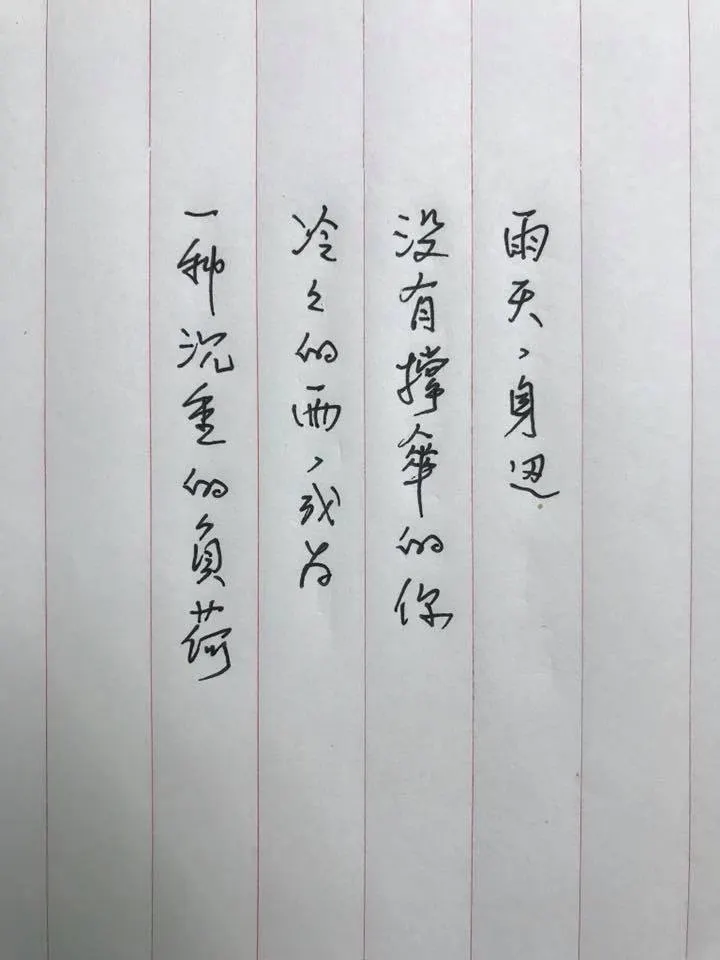 雨天、身边
没有撑伞的你
冷々的雨、或为
一种沉重的负荷